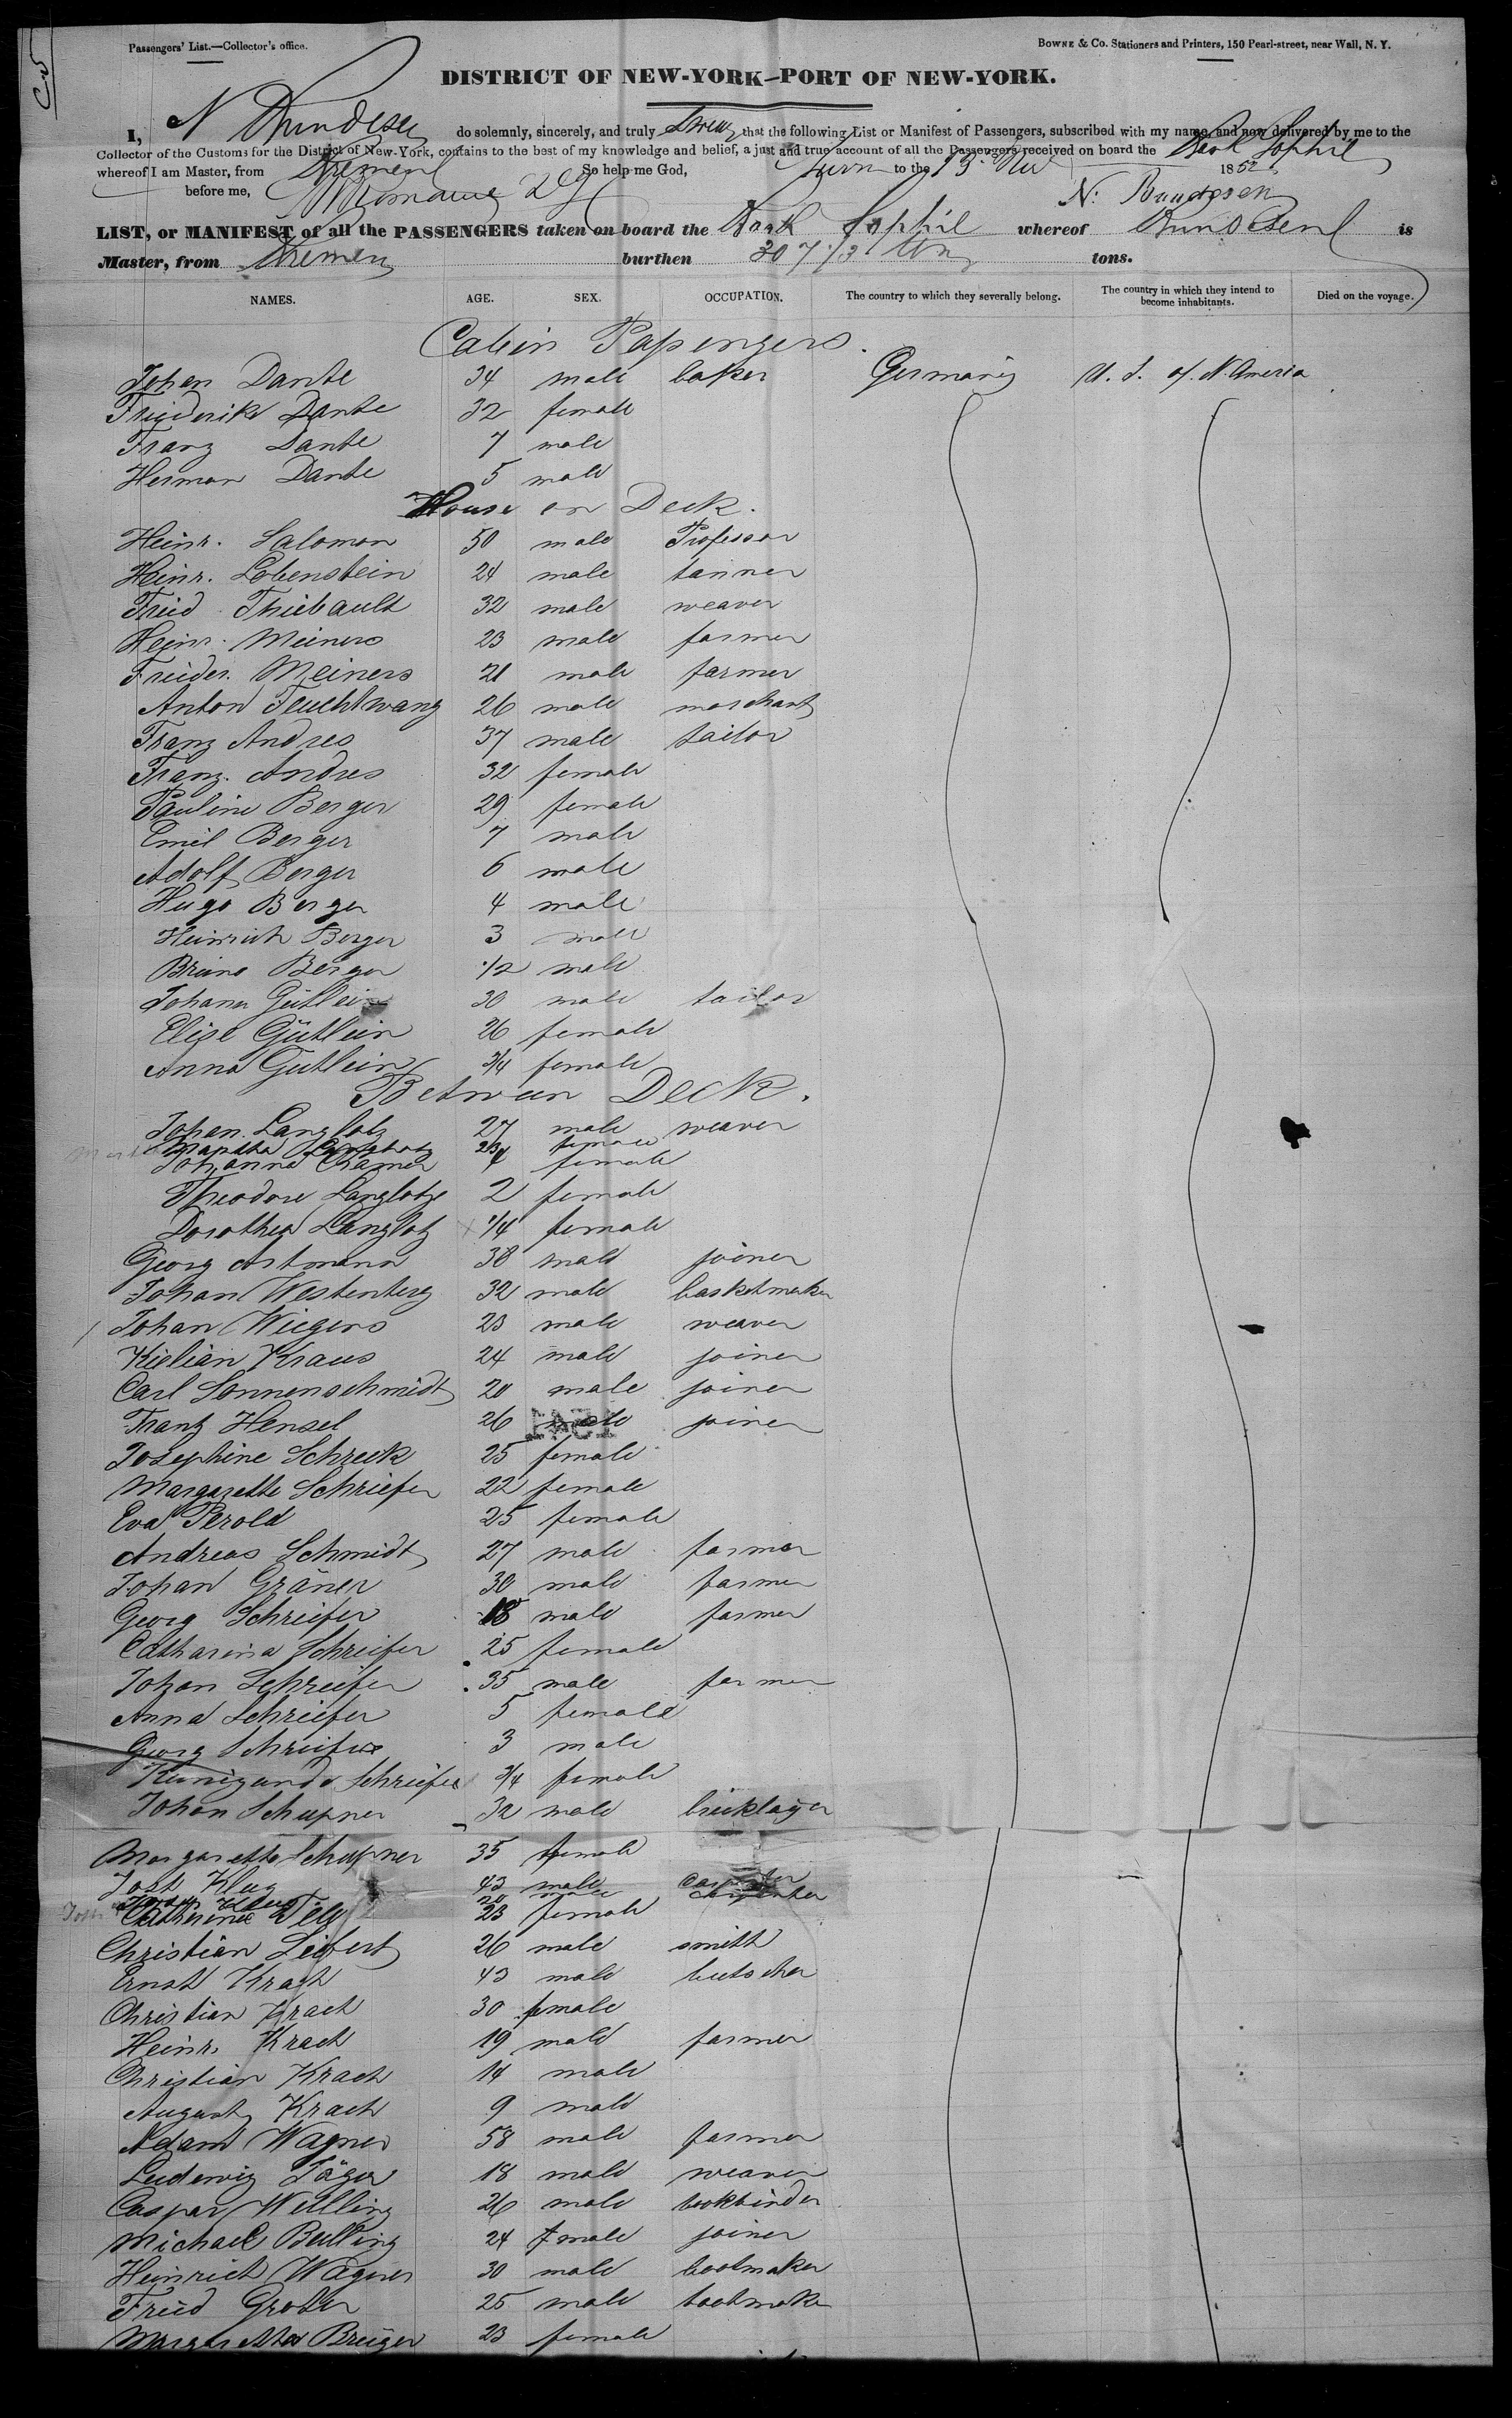 Passengers' List.—Collector's office.
Bowne & Co. Stationers and Printers, 150 Pearl-street, near Wall, N. Y.
DISTRICT OF NEW-YORK—PORT OF NEW-YORK.
I, N Bundesen do solemnly, sincerely, and truly swear that the following List or Manifest of Passengers, subscribed with my name, and now delivered by me to the
Collector of the Customs for the District of New-York, contains to the best of my knowledge and belief, a just and true account of all the Passengers received on board the Bark Sophie
whereof I am Master, from Bremen So help me God, Sworn to the 13. Nov 1852
before me, N. Bundesen
LIST, or MANIFEST of all the PASSENGERS taken on board the Bark Sophie whereof Bundesen is
Master, from Bremen burthen 307 tons.
NAMES. AGE. SEX. OCCUPATION. The country to which they severally belong. The country in which they intend to become inhabitants. Died on the voyage.
Cabin Passengers.
Johan Dante 34 male baker Germany U. S. of N. America
Friederike Dante 32 female
Franz Dante 7 male
Herman Dante 5 male
House on Deck.
Heinr. Salomon 50 male Professor
Heinr. Lobenstein 24 male tanner
Fried Thiebault 32 male weaver
Heinr. Meiners 23 male farmer
Frieder. Meiners 21 male farmer
Anton Feuchtwang 26 male merchant
Franz Andres 37 male tailor
Franz. Andres 32 female
Pauline Berger 29 female
Emil Berger 7 male
Adolf Berger 6 male
Hugo Berger 4 male
Heinrich Berger 3 male
Bruno Berger 1/2 male
Johann Gütlein 30 male tailor
Elise Gütlein 26 female
Anna Gütlein 3/4 female
Between Deck.
Johan Langlotz 27 male weaver
Martha Langlotz female
Johanna Cramer 4 female
Theodore Langlotz 2 female
Dorothea Langlotz 1/4 female
Georg Astmann 38 male joiner
Johan Westenberg 32 male basketmaker
Johan Wiegers 23 male weaver
Kielian Kraus 24 male joiner
Carl Sonnenschmidt 20 male joiner
Frantz Hensel 26 male joiner
Josephine Schreck 25 female
Margarethe Schriefer 22 female
Eva Perold 25 female
Andreas Schmidt 27 male farmer
Johan Gräner 30 male farmer
Georg Schriefer 18 male farmer
Catharina Schriefer 25 female
Johan Schriefer 35 male farmer
Anna Schriefer 5 female
Georg Schriefer 3 male
Kunigunde Schriefer 3/4 female
Johan Schupner 32 male bricklayer
Margarethe Schupner 35 female
Jost Klug 43 male carpenter
Klug 20 male carpenter
Catherine 23 female
Christian Seifert 26 male smith
Ernst Krach 43 male butscher
Christian Krach 30 female
Heinr. Krach 19 male farmer
Christian Krach 14 male
August Krach 9 male
Adam Wagner 58 male farmer
Ludewig Jäger 18 male weaver
Caspar Welling 26 male bookbinder
Michael Bulling 24 male joiner
Heinrich Wagner 30 male bootmaker
Fried Groter 25 male bootmaker
Margaretha Breüger 23 female